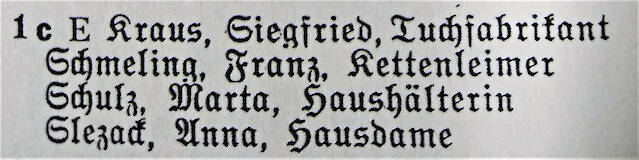 1 c E Kraus, Siegfried, Tuchfabrikant
Schmeling, Franz, Kettenleimer
Schulz, Marta, Haushälterin
Slezack, Anna, Hausdame